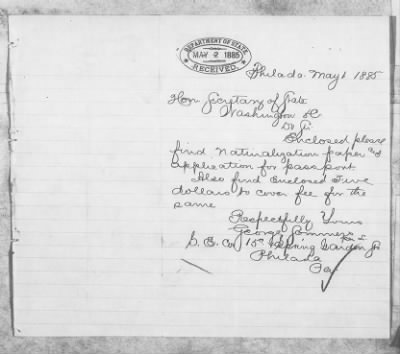 DEPARTMENT OF STATE
MAY 2 1885
RECEIVED
Philada. May 1 1885
Hon Secretary of State
Washington DC
Dr Sir
Enclosed please
find Naturalization paper and
application for passport
Also find Enclosed Five
dollars to cover fee for the
same
Respectfully Yours
George Sommers
S. E. Co 15th Spring Garden St
Philada
Pa